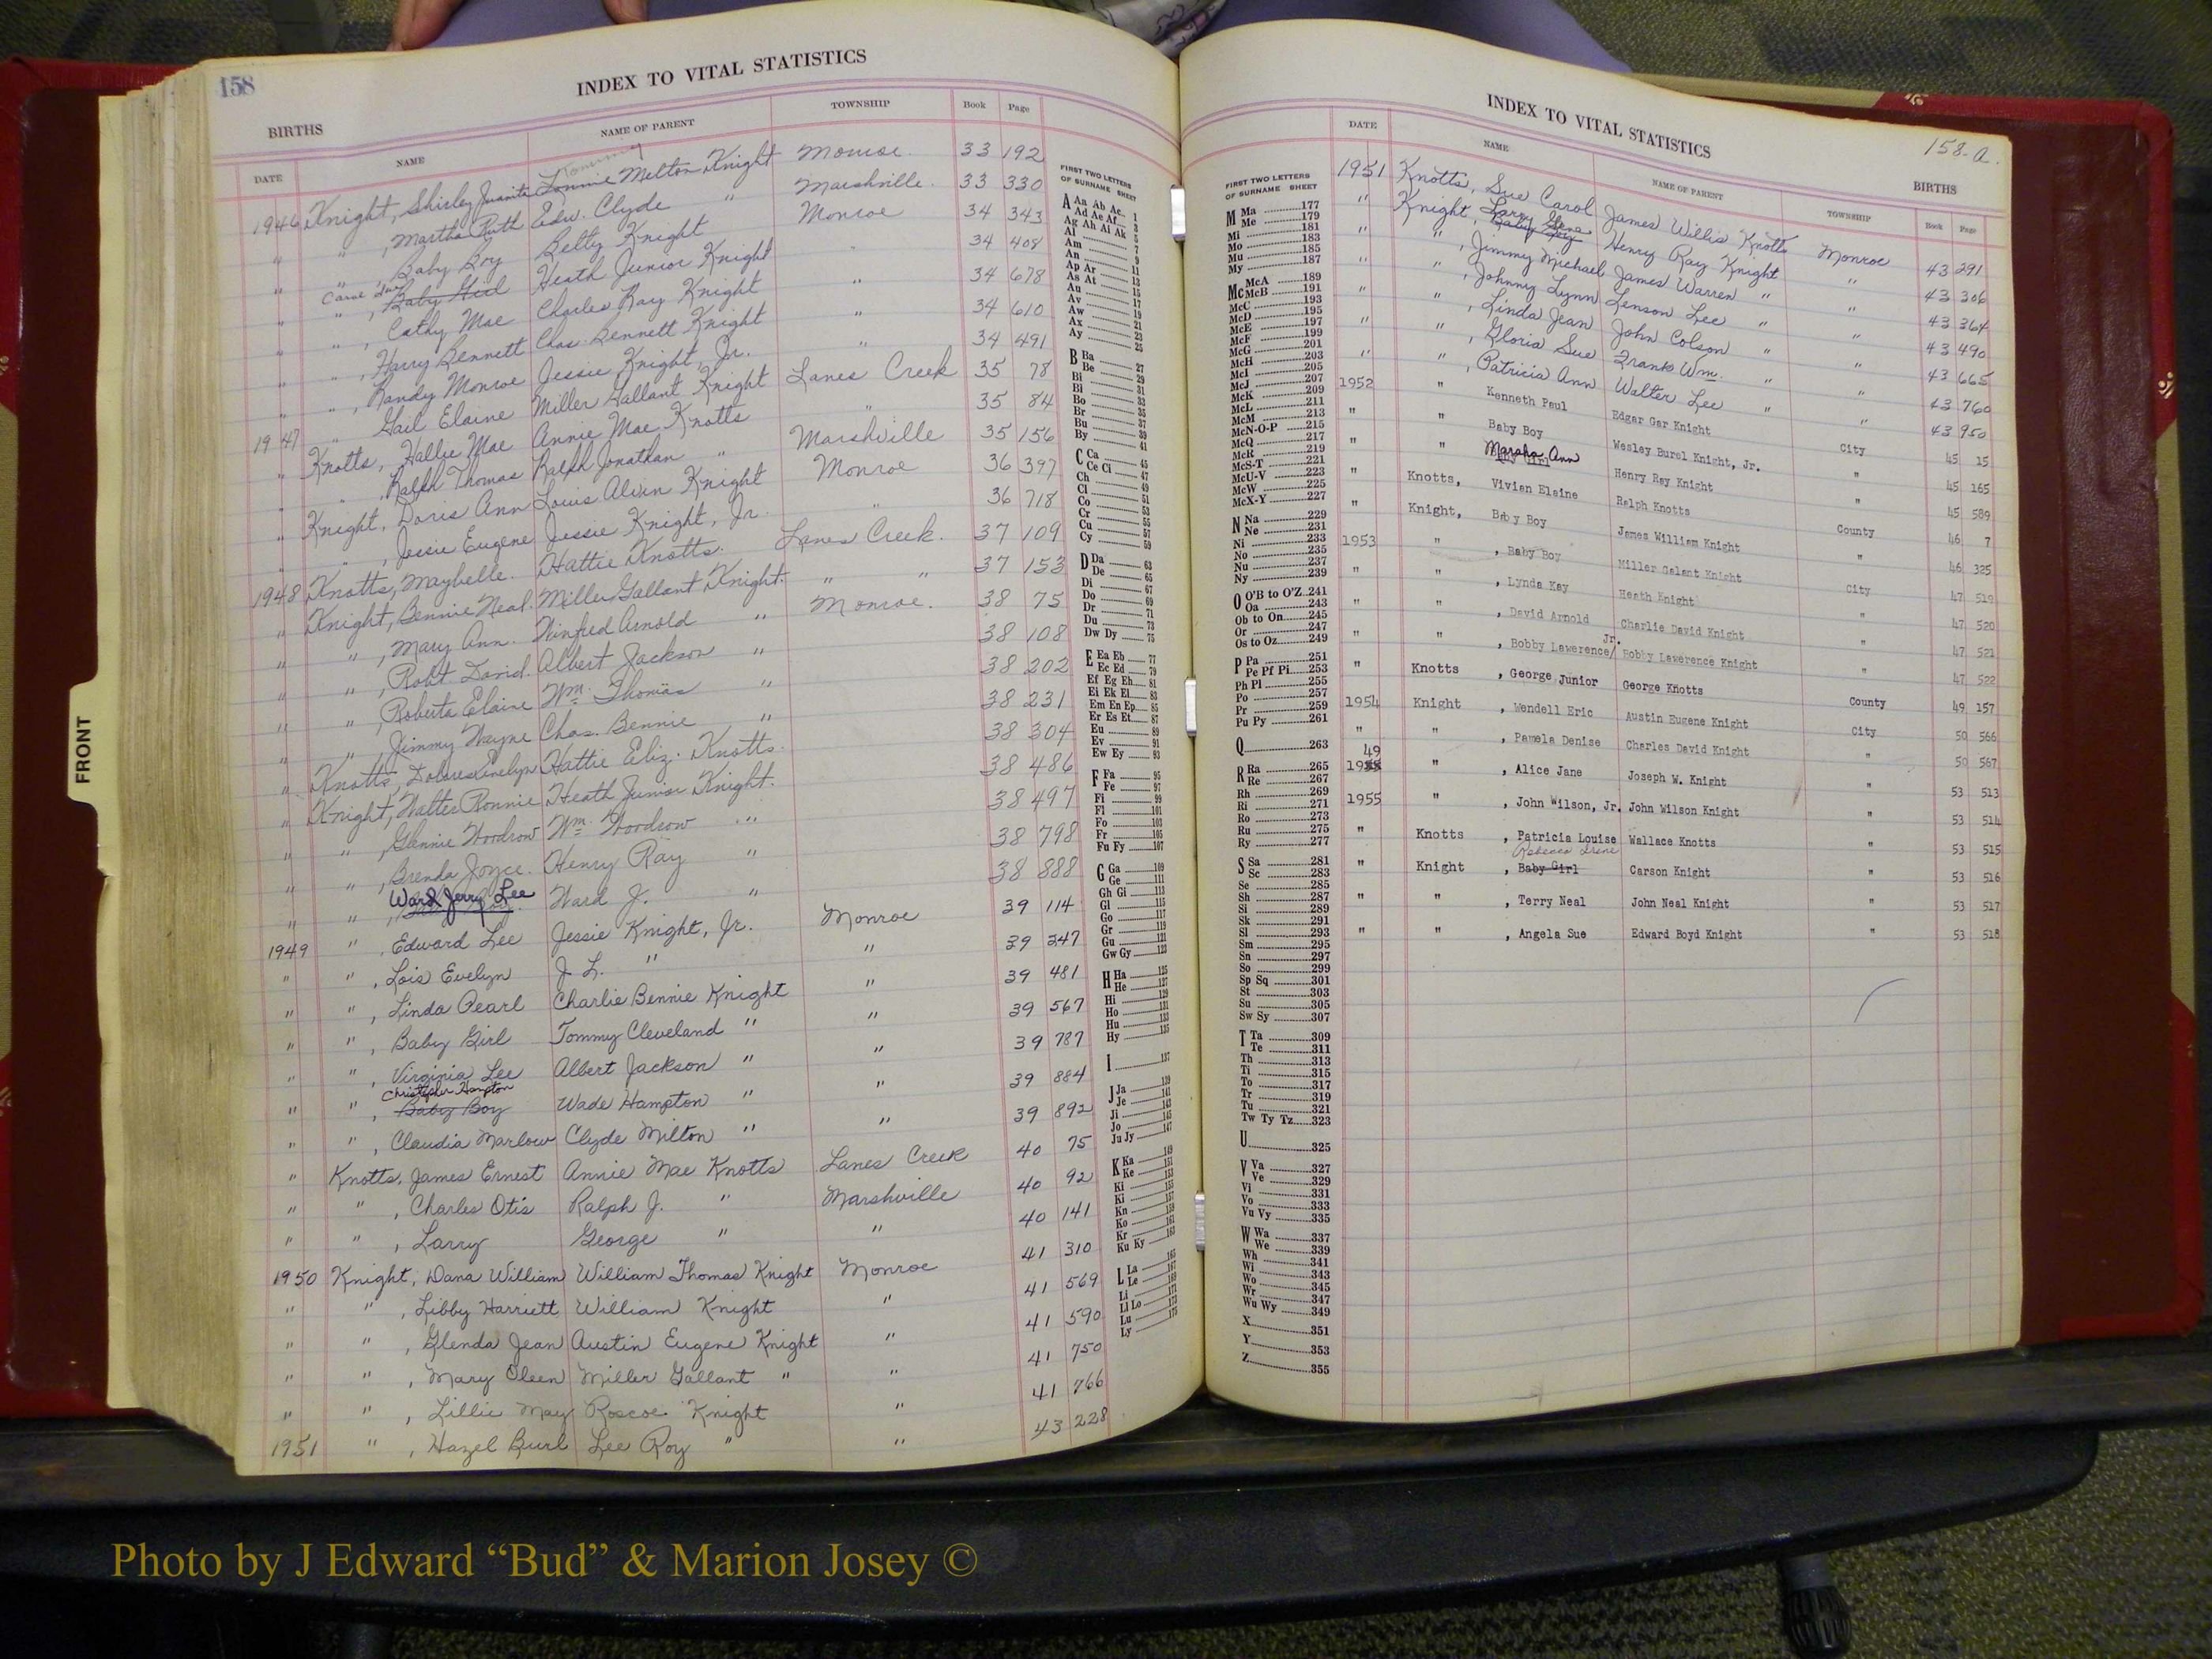 158
INDEX TO VITAL STATISTICS
BIRTHS
DATE NAME NAME OF PARENT TOWNSHIP Book Page
1946 Knight, Shirley Juanita Lonnie Melton Knight Monroe 33 192
" " , Martha Ruth Edw. Clyde " Marshville 33 330
" " , Baby Boy Betty Knight Monroe 34 343
" " , Baby Girl Heath Junior Knight " 34 408
" " , Cathy Mae Charles Ray Knight " 34 678
" " , Harry Bennett Chas. Bennett Knight " 34 610
" " , Randy Monroe Jessie Knight, Jr. " 34 491
1947 " Gail Elaine Miller Gallant Knight Lanes Creek 35 78
" Knotts, Hallie Mae Annie Mae Knotts " 35 84
" " , Ralph Thomas Ralph Jonathan " Marshville 35 156
" Knight, Doris Ann Louis Alvin Knight Monroe 36 397
" " , Jessie Eugene Jessie Knight, Jr. " 36 718
1948 Knotts, Maybelle. Hattie Knotts. Lanes Creek. 37 109
" Knight, Bennie Neal. Miller Gallant Knight. " " 37 153
" " , Mary Ann. Winfred Arnold " Monroe. 38 75
" " , Robt. David. Albert Jackson " 38 108
" " , Roberta Elaine Wm. Thomas " 38 202
" " , Jimmy Wayne Chas. Bennie " 38 231
" Knotts, Dolores Evelyn Hattie Eliz. Knotts. 38 304
" Knight, Walter Ronnie Heath Junior Knight. 38 486
" " , Glennie Woodrow Wm. Woodrow " 38 497
" " , Brenda Joyce. Henry Ray " 38 798
" " , Ward Jerry Lee Ward J. " 38 888
1949 " , Edward Lee Jessie Knight, Jr. Monroe 39 114
" " , Lois Evelyn J. L. " " 39 247
" " , Linda Pearl Charlie Bennie Knight " 39 481
" " , Baby Girl Tommy Cleveland " " 39 567
" " , Virginia Lee Albert Jackson " " 39 787
Christopher Hampton
" " , Baby Boy Wade Hampton " " 39 884
" " , Claudia Marlow Clyde Milton " " 39 892
" Knotts, James Ernest Annie Mae Knotts Lanes Creek 40 75
" " , Charles Otis Ralph J. " Marshville 40 92
" " , Larry George " " 40 141
1950 Knight, Dana William William Thomas Knight Monroe 41 310
" " , Libby Harriett William Knight " 41 569
" " , Glenda Jean Austin Eugene Knight " 41 590
" " , Mary Oleen Miller Gallant " " 41 750
" " , Lillie May Roscoe Knight " 41 766
1951 " , Hazel Burl Lee Roy " " 43 228
FIRST TWO LETTERS
OF SURNAME SHEET
A Aa Ab Ac 1
Ad Ae Af 3
Ag Ah Ai Ak 5
Al 7
Am 9
An 11
Ap Ar 13
As At 15
Au 17
Av 19
Aw 21
Ax 23
Ay 25
B Ba 27
Be 29
Bi 31
Bl 33
Bo 35
Br 37
Bu 39
By 41
C Ca 45
Ce Ci 47
Ch 49
Cl 51
Co 53
Cr 55
Cu 57
Cy 59
D Da 63
De 65
Di 67
Do 69
Dr 71
Du 73
Dw Dy 75
E Ea Eb 77
Ec Ed 79
Ef Eg Eh 81
Ei Ek El 83
Em En Ep 85
Er Es Et 87
Eu 89
Ev 91
Ew Ey 93
F Fa 95
Fe 97
Fi 99
Fl 101
Fo 103
Fr 105
Fu Fy 107
G Ga 109
Ge 111
Gh Gi 113
Gl 115
Go 117
Gr 119
Gu 121
Gw Gy 123
H Ha 125
He 127
Hi 129
Ho 131
Hu 133
Hy 135
I 137
J Ja 139
Je 141
Ji 143
Jo 145
Ju Jy 147
K Ka 149
Ke 151
Ki 153
Kl 157
Kn
Ko 159
Kr 161
Ku Ky 163
L La 165
Le 167
Li 169
Ll Lo 171
Lu 173
Ly 175
FRONT
INDEX TO VITAL STATISTICS
158-a.
DATE NAME NAME OF PARENT TOWNSHIP BIRTHS Book Page
1951 Knotts, Sue Carol James Willis Knotts Monroe 43 291
" Knight, Larry Gene Henry Ray Knight " 43 306
Baby Boy
" " , Jimmy Michael James Warren " " 43 364
" " , Johnny Lynn Lenson Lee " " 43 490
" " , Linda Jean John Colson " " 43 665
" " , Gloria Sue Frank Wm. " " 43 760
" " , Patricia Ann Walter Lee " " 43 950
1952 " Kenneth Paul Edgar Gar Knight City 45 15
" " Baby Boy Wesley Burel Knight, Jr. " 45 165
" " Marsha Ann Henry Ray Knight " 45 589
" Knotts, Vivian Elaine Ralph Knotts County 46 7
" Knight, Baby Boy James William Knight " 46 325
1953 " , Baby Boy Miller Galant Knight City 47 519
" " , Lynda Kay Heath Knight " 47 520
" " , David Arnold Charlie David Knight " 47 521
" " , Bobby Lawerence/Jr. Bobby Lawerence Knight " 47 522
" Knotts , George Junior George Knotts County 49 157
1954 Knight , Wendell Eric Austin Eugene Knight City 50 566
" " , Pamela Denise Charles David Knight " 50 567
49
19 " , Alice Jane Joseph W. Knight " 53 513
1955 " , John Wilson, Jr. John Wilson Knight " 53 514
" Knotts , Patricia Louise Wallace Knotts " 53 515
Rebecca Irene
" Knight , Baby Girl Carson Knight " 53 516
" " , Terry Neal John Neal Knight " 53 517
" " , Angela Sue Edward Boyd Knight " 53 518
FIRST TWO LETTERS
OF SURNAME SHEET
M Ma 177
Me 179
Mi 181
Mo 183
Mu 185
My 187
Mc McA 189
McB 191
McC 193
McD 195
McE 197
McF 199
McG 201
McH 203
McI 205
McJ 207
McK 209
McL 211
McM 213
McN-O-P 215
McQ 217
McR 219
McS-T 221
McU-V 223
McW 225
McX-Y 227
N Na 229
Ne 231
Ni 233
No 235
Nu 237
Ny 239
O O'B to O'Z 241
Oa 243
Ob to On 245
Or 247
Os to Oz 249
P Pa 251
Pe Pf Pi 253
Ph Pl 255
Po 257
Pr 259
Pu Py 261
Q 263
R Ra 265
Re 267
Rh 269
Ri 271
Ro 273
Ru 275
Ry 277
S Sa 281
Sc 283
Se 285
Sh 287
Si 289
Sk 291
Sl 293
Sm 295
Sn 297
So 299
Sp Sq 301
St 303
Su 305
Sw Sy 307
T Ta 309
Te 311
Th 313
Ti 315
To 317
Tr 319
Tu 321
Tw Ty Tz 323
U 325
V Va 327
Ve 329
Vi 331
Vo 333
Vu Vy 335
W Wa 337
We 339
Wh 341
Wi 343
Wo 345
Wr 347
Wu Wy 349
X 351
Y 353
Z 355
Photo by J Edward “Bud” & Marion Josey ©